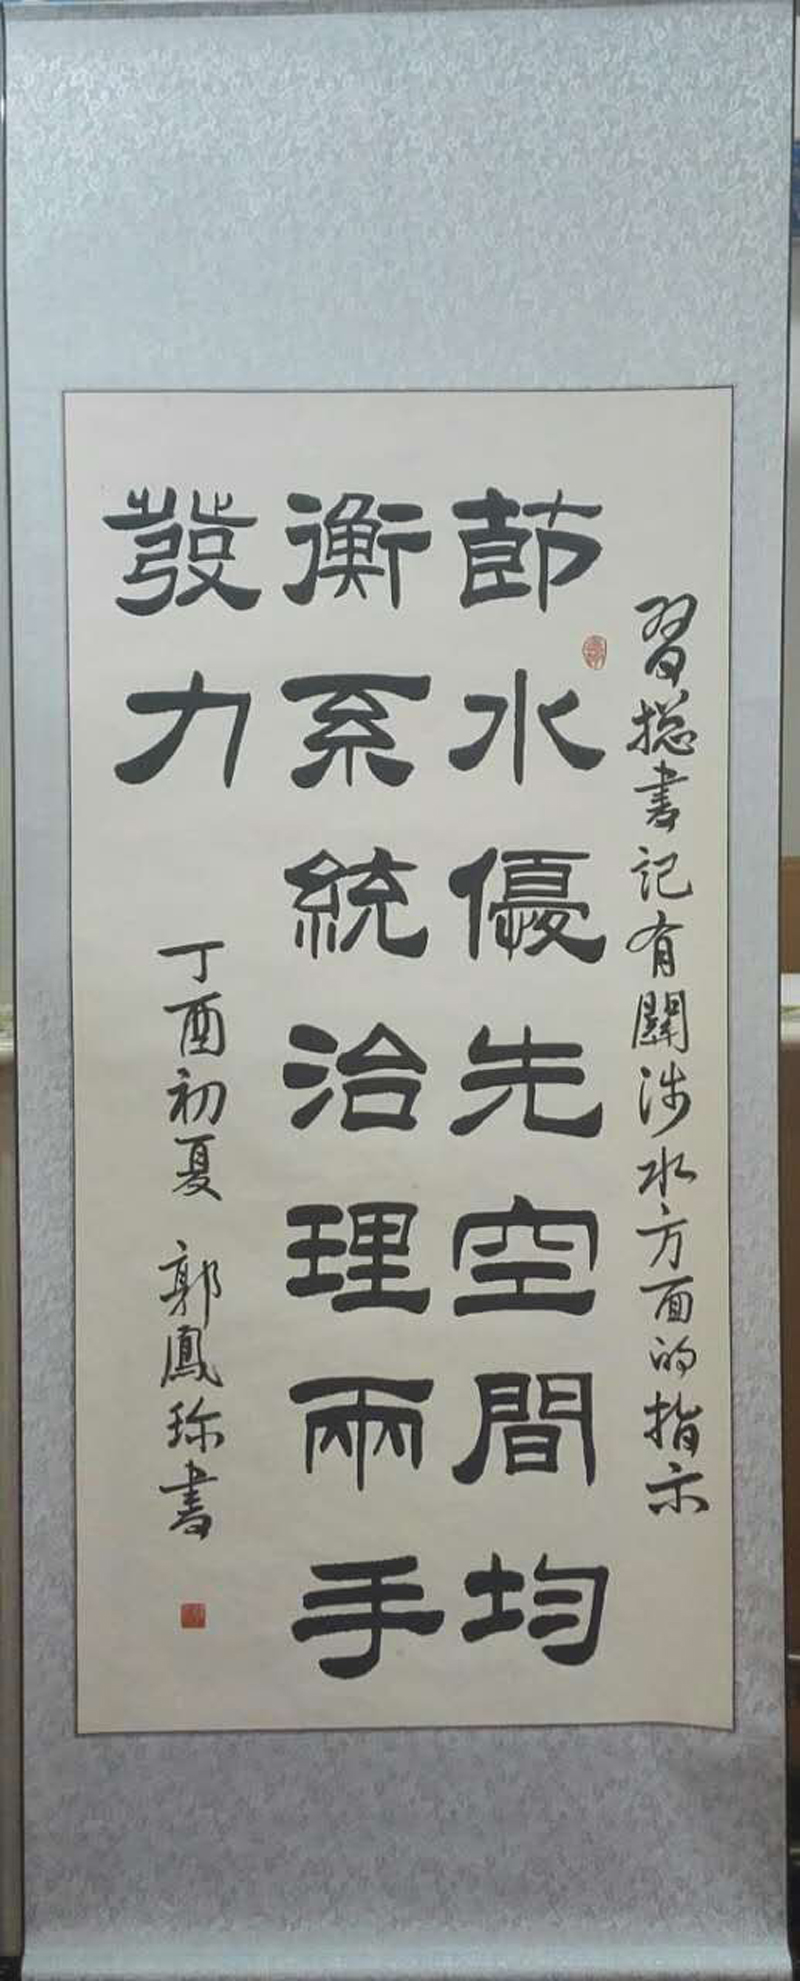 習総書記有關涉水方面的指示
節水優先空間均
衡系統治理兩手
發力
丁酉初夏 郭鳳珎書